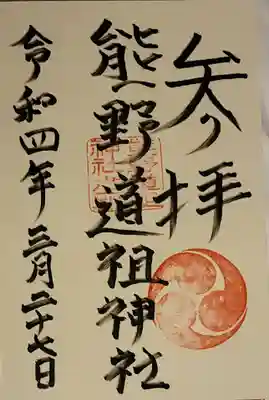 奉拝
熊野道祖神社
令和四年三月二十七日